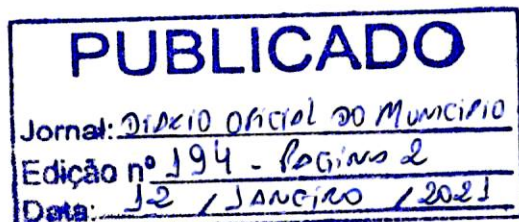 PUBLICADO
Jornal: DIÁRIO OFICIAL DO MUNICÍPIO
Edição nº 194 - PAGINA 2
Data: 12 / JANEIRO / 2021